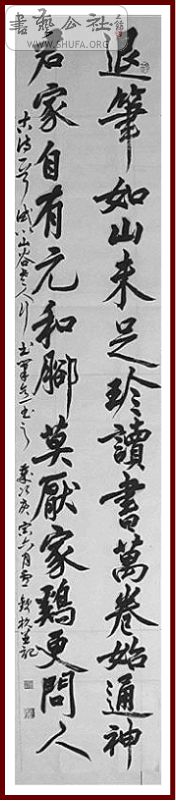 書藝公社
WWW.SHUFA.ORG
退筆如山未足珍讀書萬卷始通神
君家自有元和腳莫厭家鷄更問人
古詩一首
歲次庚寅六月
並記